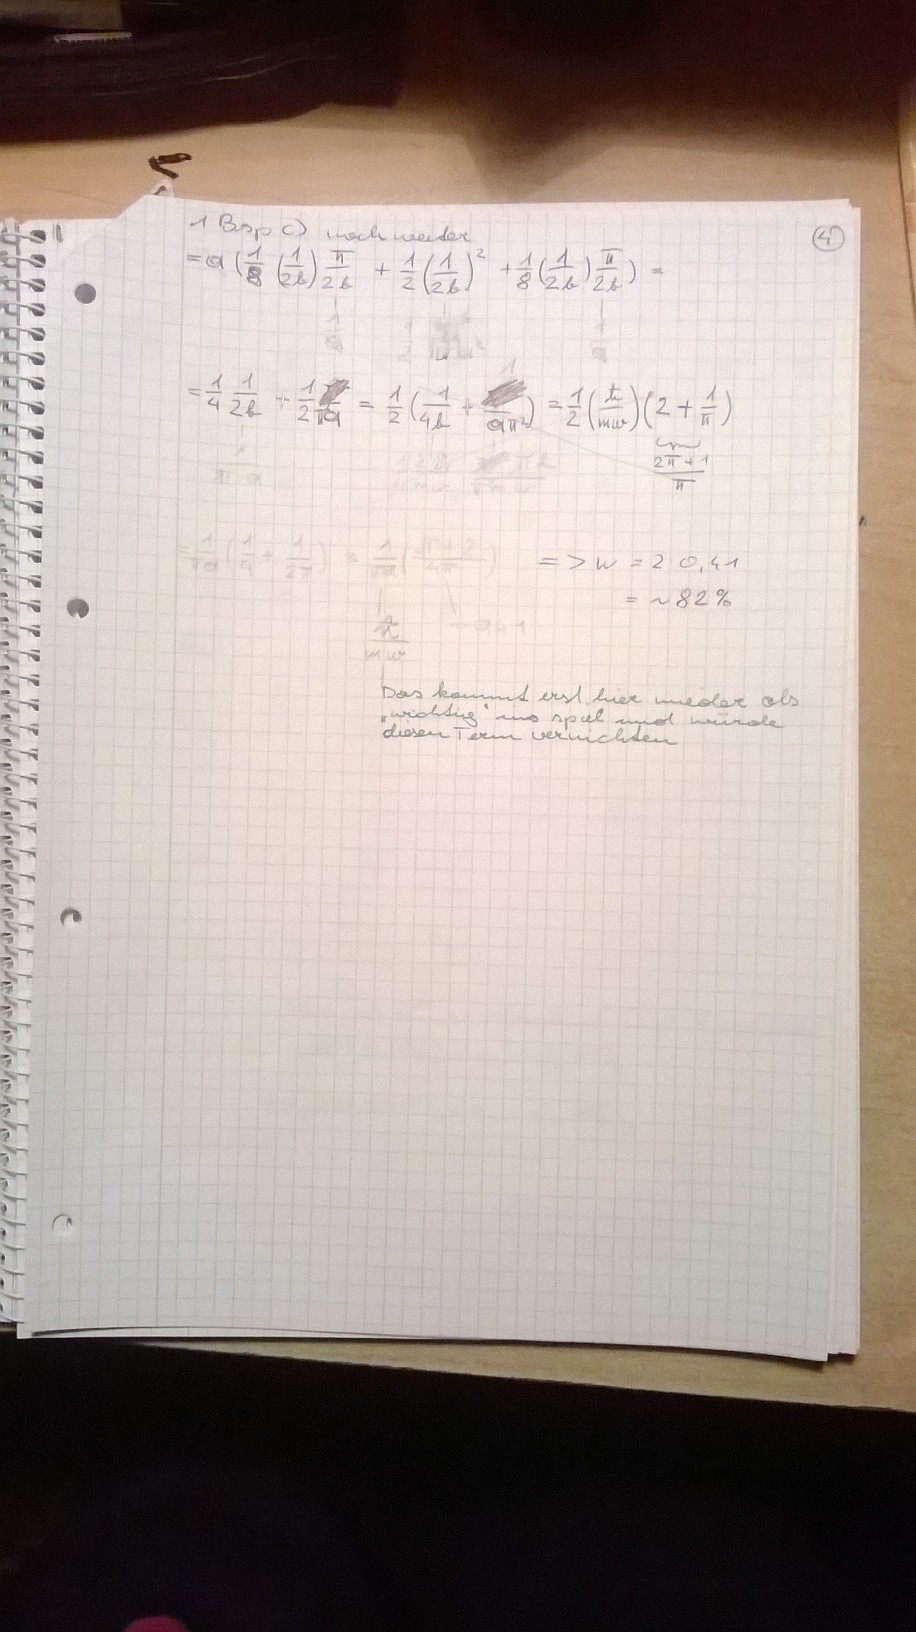 1 Bsp c) noch weiter
4
= a (1/8 (1/2b) π/2b + 1/2 (1/2b)² + 1/8 (1/2b) π/2b) =
1/a 1/2 1/a
= 1/4 1/2b + 1/2 1/πa = 1/2 (1/4b + 1/aπ²) = 1/2 (ħ/mω) (2 + 1/π)
(2π+1)/π
= 1/πa (1/4 + 1/2π) = 1/πa ( )
=> W = 2 0,41
= ~ 82%
ħ/mω ~ 0,41
Das kommt erst hier wieder als
„wichtig" ins spiel und würde
diesen Term vernichten